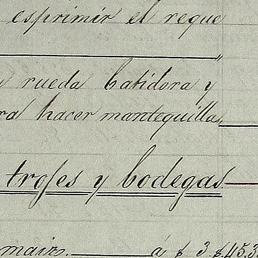 esprimir el reque
rueda batidora y
ra hacer mantequilla,
trojes y bodegas
maiz. á $ 3 $ 453